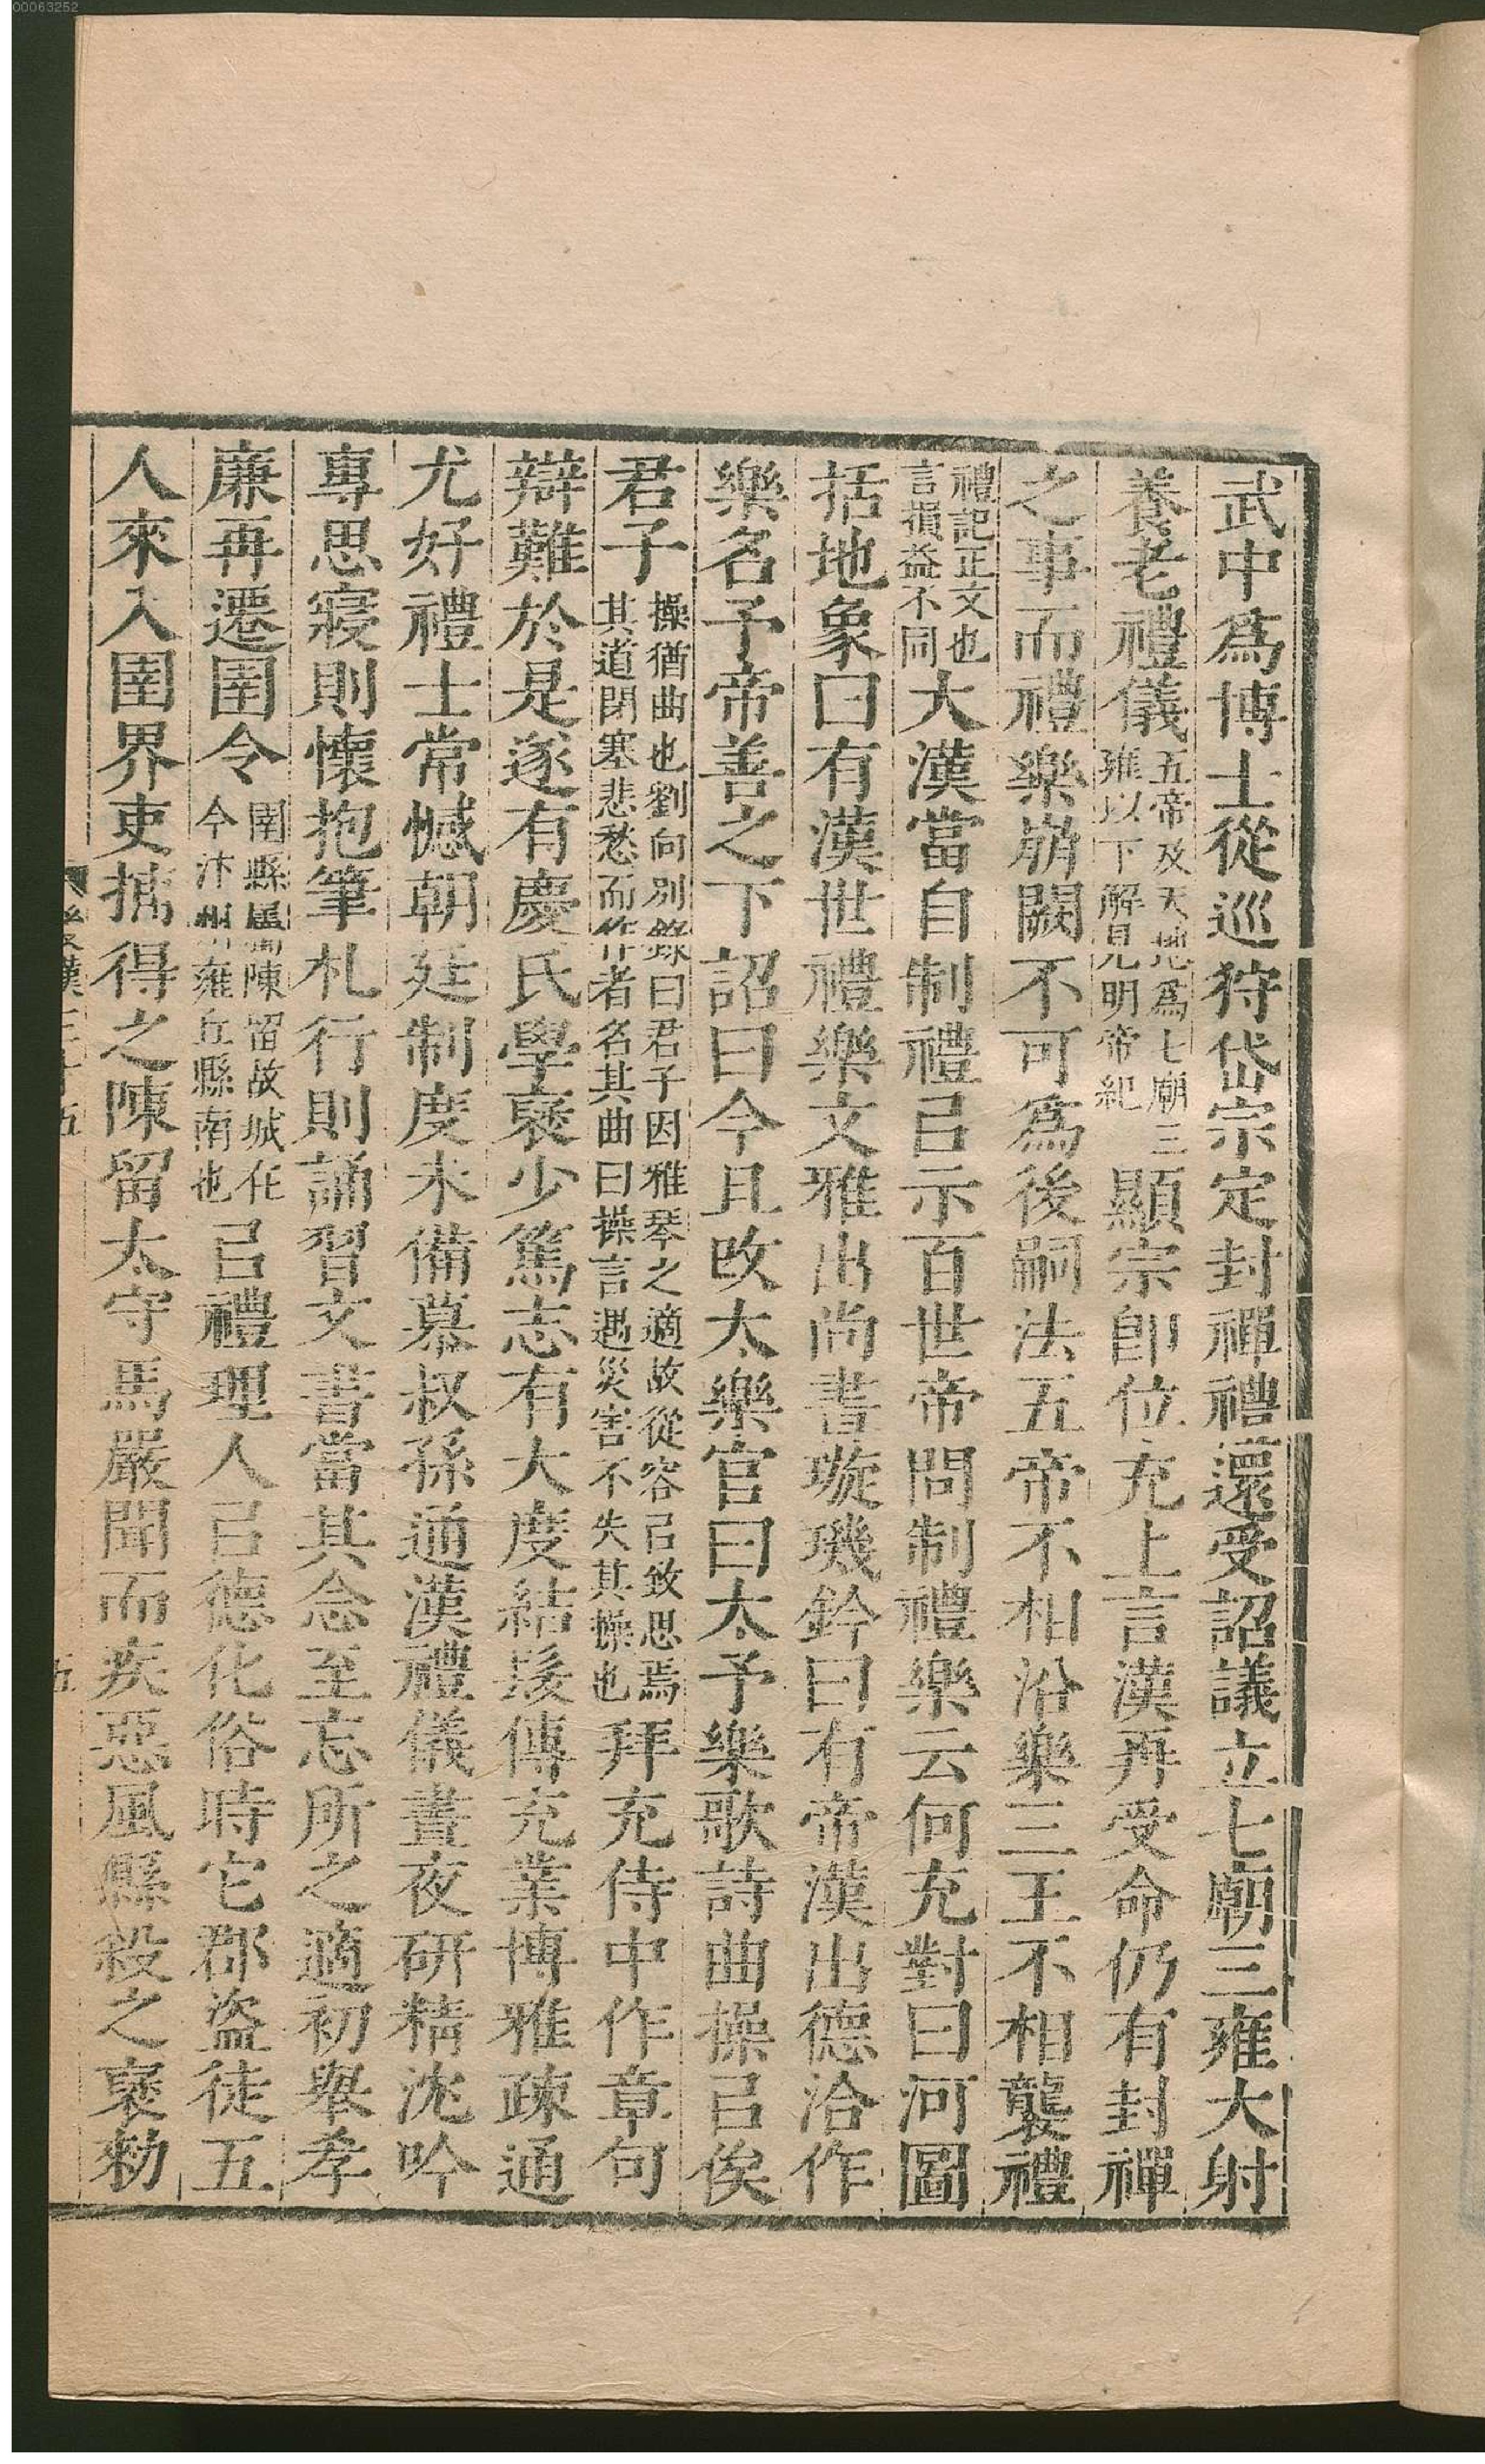 00063252
武中爲博士從巡狩岱宗定封禪禮還受詔議立七廟三雍大射
養老禮儀五帝及天地爲七廟三雍以下解見明帝紀顯宗卽位充上言漢再受命仍有封禪
之事而禮樂崩闕不可爲後嗣法五帝不相沿樂三王不相襲禮
禮記正文也言損益不同大漢當自制禮㠯示百世帝問制禮樂云何充對曰河圖
括地象曰有漢世禮樂文雅出尚書璇璣鈐曰有帝漢出德洽作
樂名予帝善之下詔曰今且改太樂官曰太予樂歌詩曲操㠯俟
君子操猶曲也劉向別錄曰君子因雅琴之適故從容㠯致思焉其道閉塞悲愁而作者名其曲曰操言遇災害不失其操也拜充侍中作章句
辯難於是遂有慶氏學襃少篤志有大度結髮傳充業博雅疎通
尤好禮士常憾朝廷制度未備慕叔孫通漢禮儀晝夜研精沈吟
專思寢則懷抱筆札行則誦習文書當其念至忘所之適初舉孝
廉再遷圉令圉縣屬陳留故城在今汴州雍丘縣南也㠯禮理人㠯德化俗時它郡盜徒五
人來入圉界吏捕得之陳留太守馬嚴聞而疾惡風縣殺之襃勑
五